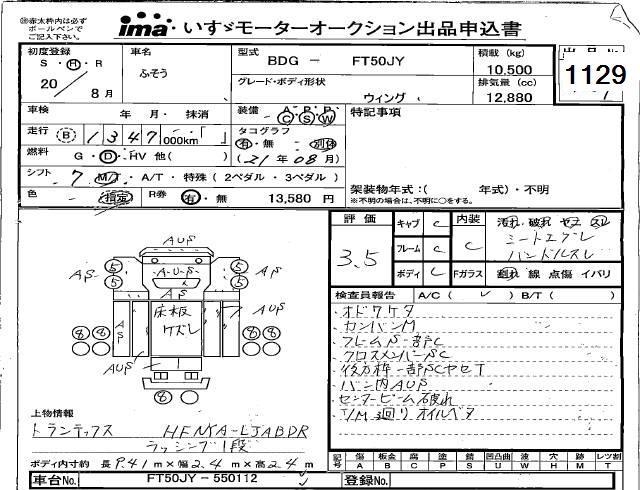 (注)赤太枠内は必ず
ボールペンで
ご記入下さい。
ima いすゞモーターオークション出品申込書
初度登録 車名 型式 積載 (kg) 出品No.
S・H・R ふそう BDG - FT50JY 10,500 1129
20/8月 グレード・ボディ形状 排気量 (cc)
ウィング 12,880
車検 年 月・抹消 装備 A・P・P C S W 特記事項
走行 B 1347 000km「 」 タコグラフ
有・無 別体
燃料 G・D・HV 他( ) (21年08月)
シフト 7 M/T・A/T・特殊 (2ペダル・3ペダル) 架装物年式:( 年式)・不明
色 指定 R券 有・無 13,580 円 ※不明の場合は、不明に○をする。
評価 キャブ C 内装 汚れ 破れ ヤニ スレ
3.5 フレーム C C シートコゲ
ハンドルスレ
ボディ C Fガラス 割れ 線 点傷 イバリ
検査員報告 A/C( ✓ ) B/T( )
AUS
AS 5 5 A・U・S 5 5 AS
AS 床板 ケズレ AUS
8 8 8 8
1
AUS
8
オドワケタ
カンバンM
フレームS一部C
クロスメンバーSC
後方枠一部SCヤセT
バン内AUS
センタービーム破れ
T/M廻りオイルベタ
上物情報
トランテックス HFNYA-LJABDR
ラッシング1段
ボディ内寸約 長9.41m×幅2.4m×高2.4m
記号 傷 板金 腐 塗 錆 凹凸曲 波 穴 跡 レツ割
A B C P S U W H M T
車台No. FT50JY-550112 登録No.